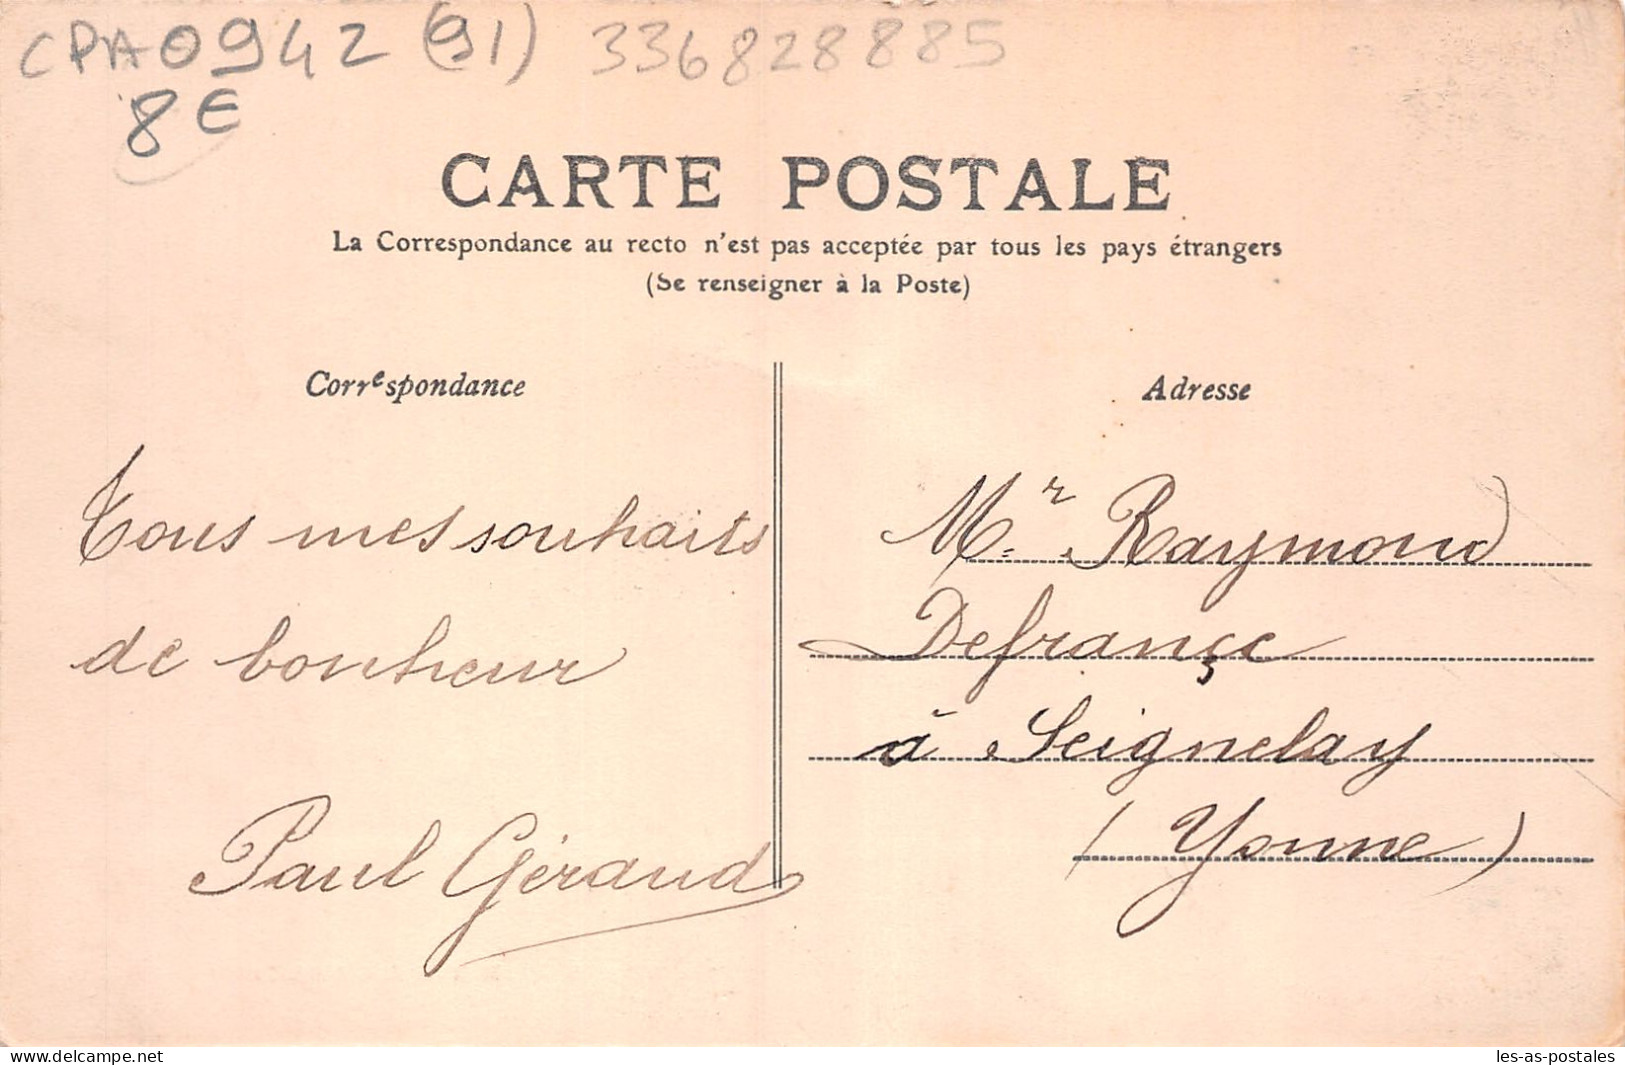 CPA0942 (91) 336828885
8€
CARTE POSTALE
La Correspondance au recto n'est pas acceptée par tous les pays étrangers
(Se renseigner à la Poste)
Correspondance
Tous mes souhaits
de bonheur
Paul Géraud
Adresse
Mr. Raymond
Defrançe
à Seignelay
(Yonne)
delcampe.net
les-as-postales